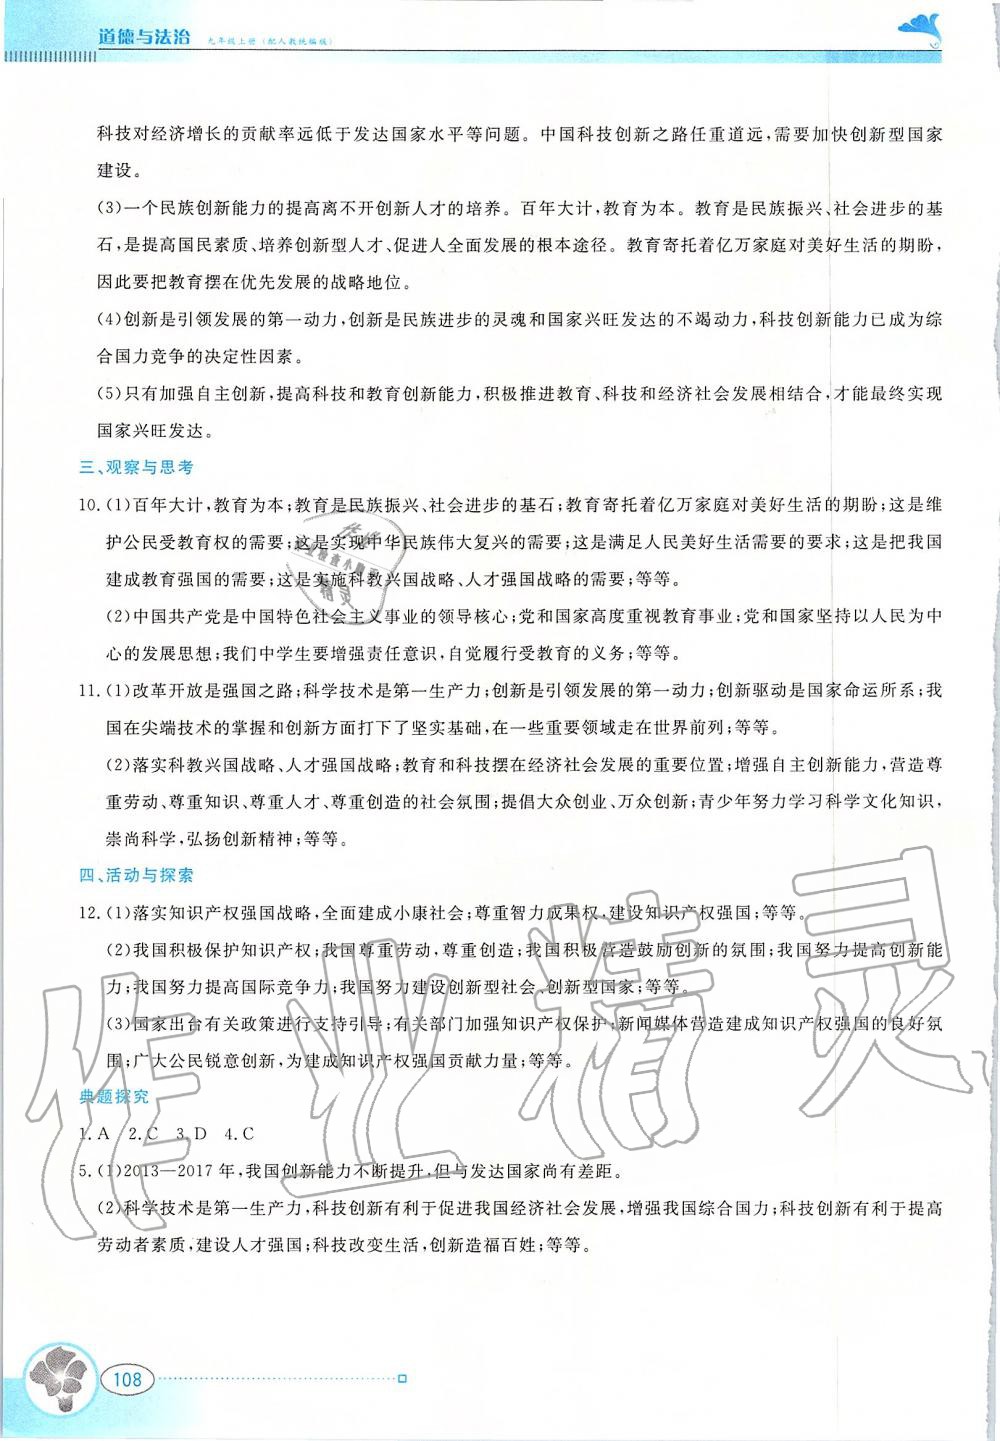 道德与法治 九年级上册(配人教统编版)
科技对经济增长的贡献率远低于发达国家水平等问题。中国科技创新之路任重道远,需要加快创新型国家
建设。
(3)一个民族创新能力的提高离不开创新人才的培养。百年大计,教育为本。教育是民族振兴、社会进步的基
石,是提高国民素质、培养创新型人才、促进人全面发展的根本途径。教育寄托着亿万家庭对美好生活的期盼,
因此要把教育摆在优先发展的战略地位。
(4)创新是引领发展的第一动力,创新是民族进步的灵魂和国家兴旺发达的不竭动力,科技创新能力已成为综
合国力竞争的决定性因素。
(5)只有加强自主创新,提高科技和教育创新能力,积极推进教育、科技和经济社会发展相结合,才能最终实现
国家兴旺发达。
三、观察与思考
10.(1)百年大计,教育为本;教育是民族振兴、社会进步的基石;教育寄托着亿万家庭对美好生活的期盼;这是维
护公民受教育权的需要;这是实现中华民族伟大复兴的需要;这是满足人民美好生活需要的要求;这是把我国
建成教育强国的需要;这是实施科教兴国战略、人才强国战略的需要;等等。
(2)中国共产党是中国特色社会主义事业的领导核心;党和国家高度重视教育事业;党和国家坚持以人民为中
心的发展思想;我们中学生要增强责任意识,自觉履行受教育的义务;等等。
11.(1)改革开放是强国之路;科学技术是第一生产力;创新是引领发展的第一动力;创新驱动是国家命运所系;我
国在尖端技术的掌握和创新方面打下了坚实基础,在一些重要领域走在世界前列;等等。
(2)落实科教兴国战略、人才强国战略;教育和科技摆在经济社会发展的重要位置;增强自主创新能力,营造尊
重劳动、尊重知识、尊重人才、尊重创造的社会氛围;提倡大众创业、万众创新;青少年努力学习科学文化知识,
崇尚科学,弘扬创新精神;等等。
四、活动与探索
12.(1)落实知识产权强国战略,全面建成小康社会;尊重智力成果权,建设知识产权强国;等等。
(2)我国积极保护知识产权;我国尊重劳动,尊重创造;我国积极营造鼓励创新的氛围;我国努力提高创新能
力;我国努力提高国际竞争力;我国努力建设创新型社会、创新型国家;等等。
(3)国家出台有关政策进行支持引导;有关部门加强知识产权保护;新闻媒体营造建成知识产权强国的良好氛
围;广大公民锐意创新,为建成知识产权强国贡献力量;等等。
典题探究
1.A 2.C 3.D 4.C
5.(1)2013—2017年,我国创新能力不断提升,但与发达国家尚有差距。
(2)科学技术是第一生产力,科技创新有利于促进我国经济社会发展,增强我国综合国力;科技创新有利于提高
劳动者素质,建设人才强国;科技改变生活,创新造福百姓;等等。
108
作业精灵